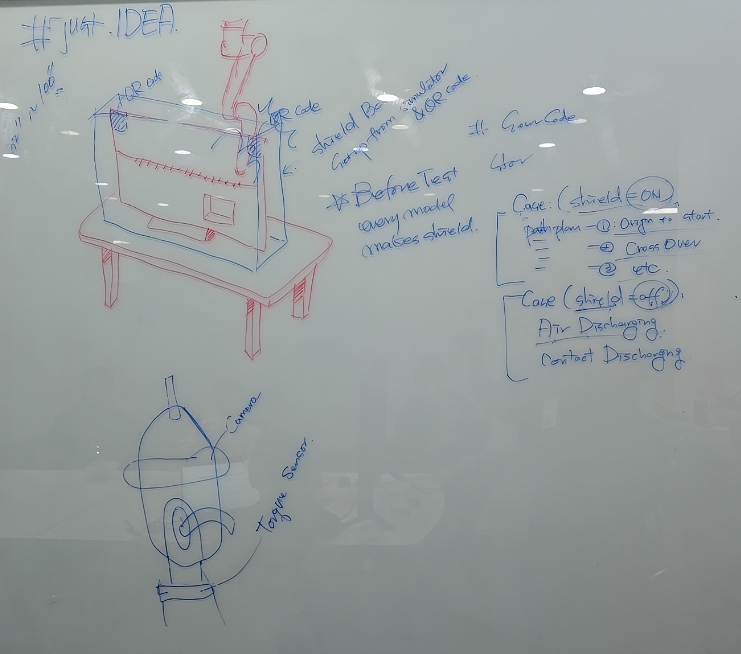 # just. IDEA.
22" ~ 100"
QR code
QR code
Shield Box
from Simulator
& QR code.
※ Before Test
every model
makes shield.
#.
Case: (shield = ON),
path plan - ①: Origin to start.
② Cross Over
③ etc.
Case (shield = off),
Air Discharging.
Contact Discharging.
Camera
Torque Sensor.